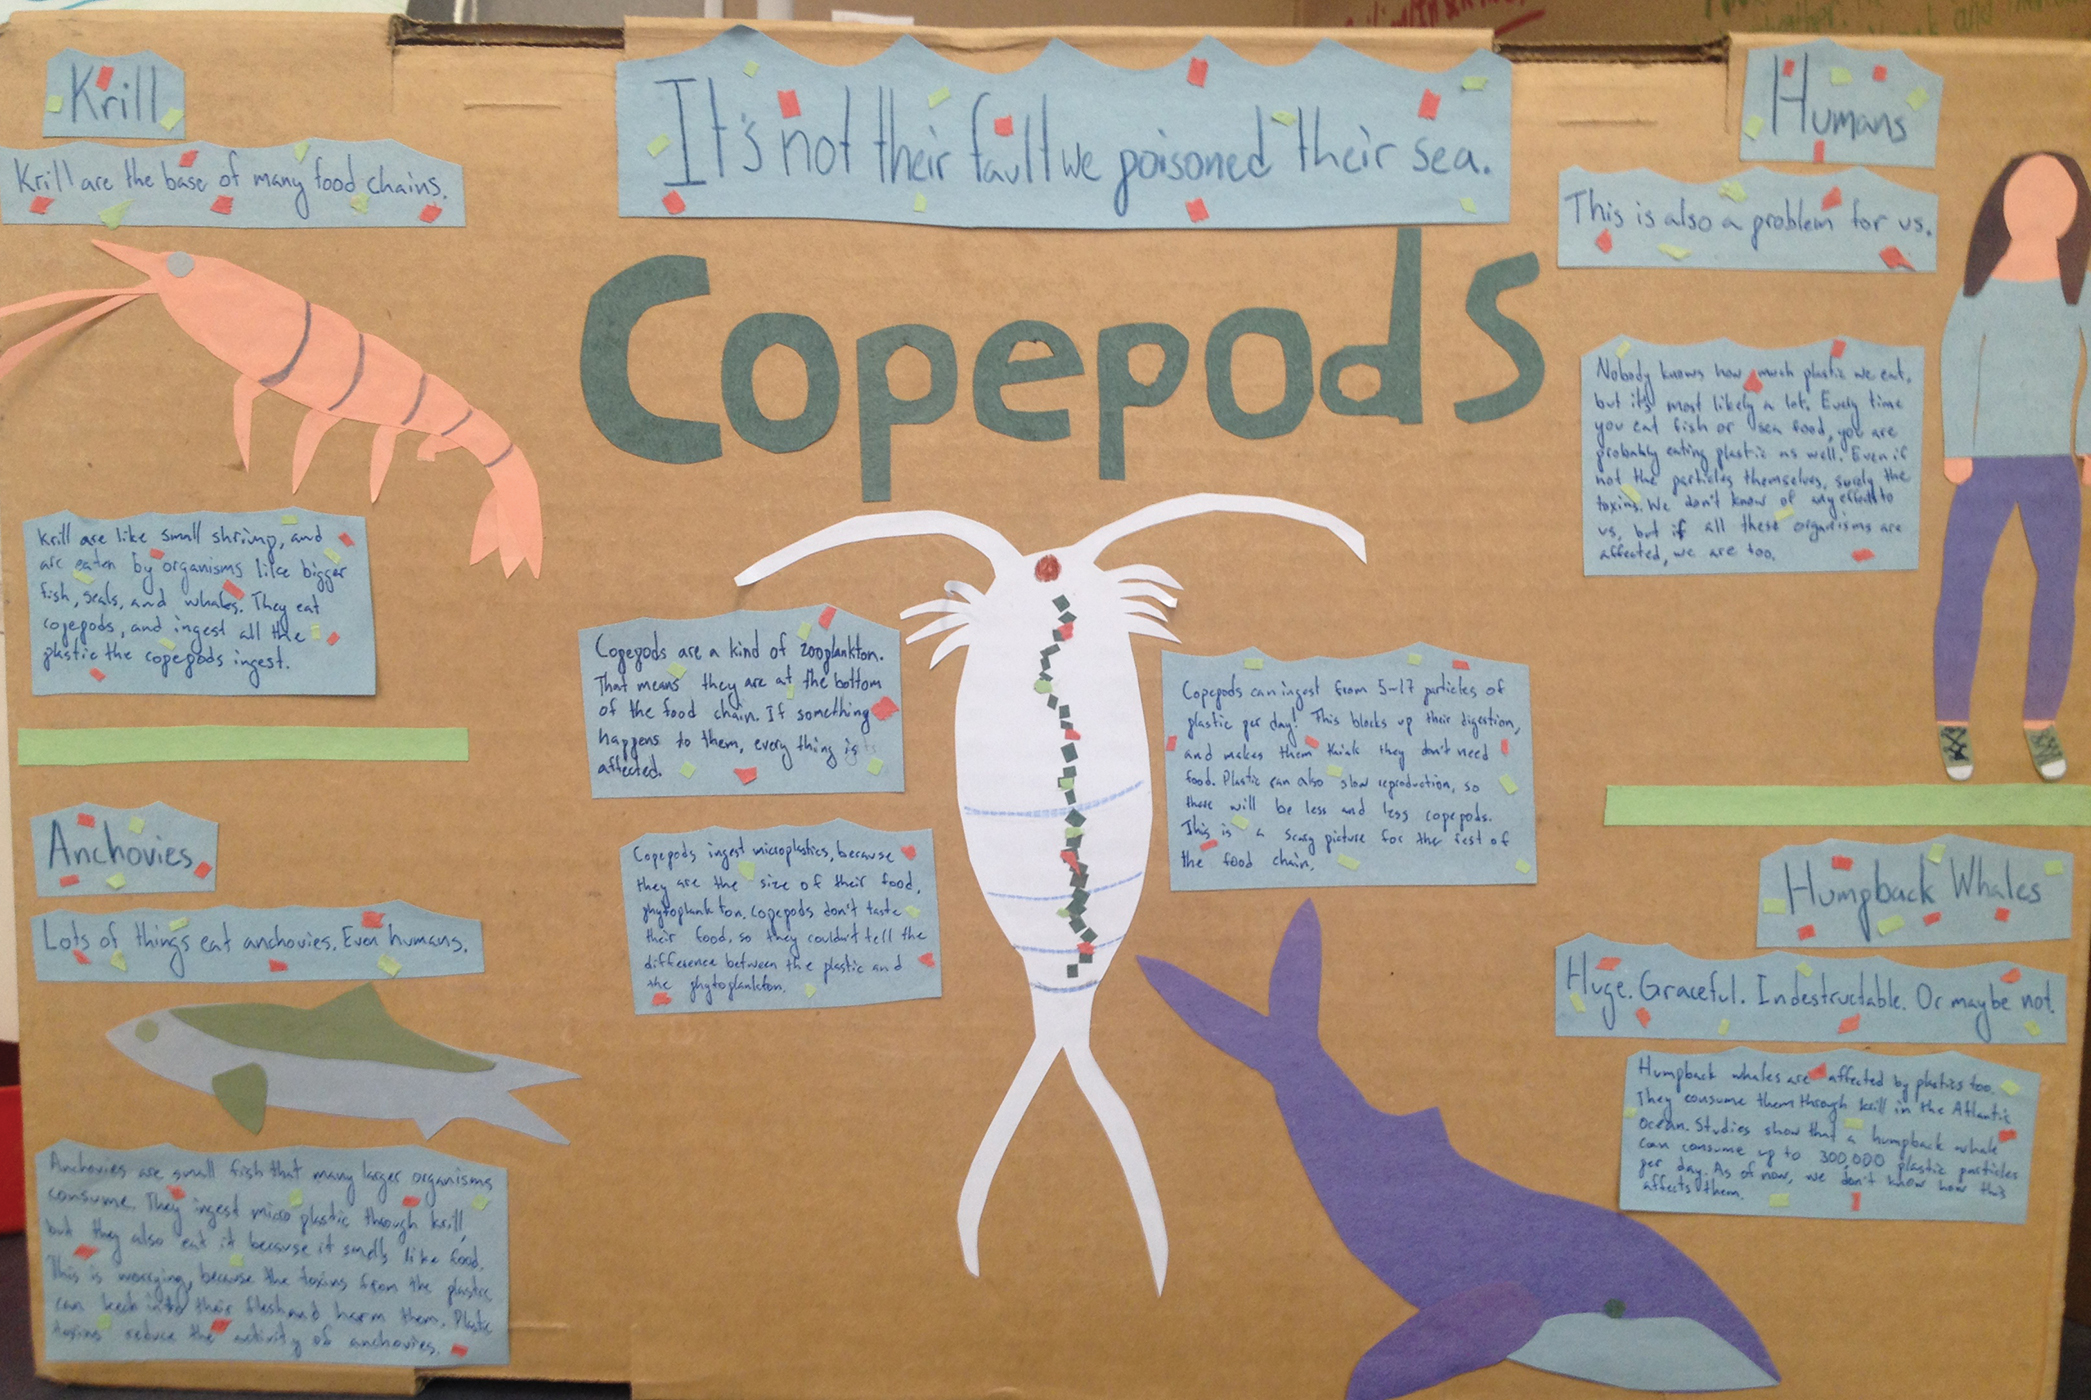 It's not their fault we poisoned their sea.
Copepods
Krill
Krill are the base of many food chains.
Krill are like small shrimp, and
are eaten by organisms like bigger
fish, seals, and whales. They eat
copepods, and ingest all the
plastic the copepods ingest.
Anchovies
Lots of things eat anchovies. Even humans.
Anchovies are small fish that many larger organisms
consume. They ingest micro plastic through krill,
but they also eat it because it smells like food.
This is worrying, because the toxins from the plastic
can leech into their flesh and harm them. Plastic
toxins reduce the activity of anchovies.
Copepods are a kind of zooplankton.
That means they are at the bottom
of the food chain. If something
happens to them, every thing is
affected.
Copepods ingest microplastics, because
they are the size of their food,
phytoplankton. Copepods don't taste
their food, so they couldn't tell the
difference between the plastic and
the phytoplankton.
Copepods can ingest from 5-17 particles of
plastic per day! This blocks up their digestion,
and makes them think they don't need
food. Plastic can also slow reproduction, so
there will be less and less copepods.
This is a scary picture for the rest of
the food chain.
Humans
This is also a problem for us.
Nobody knows how much plastic we eat,
but it's most likely a lot. Every time
you eat fish or sea food, you are
probably eating plastic as well. Even if
not the particles themselves, surely the
toxins. We don't know of any effects to
us, but if all these organisms are
affected, we are too.
Humpback Whales
Huge. Graceful. Indestructable. Or maybe not.
Humpback whales are affected by plastics too.
They consume them through krill in the Atlantic
Ocean. Studies show that a humpback whale
can consume up to 300,000 plastic particles
per day. As of now, we don't know how this
affects them.